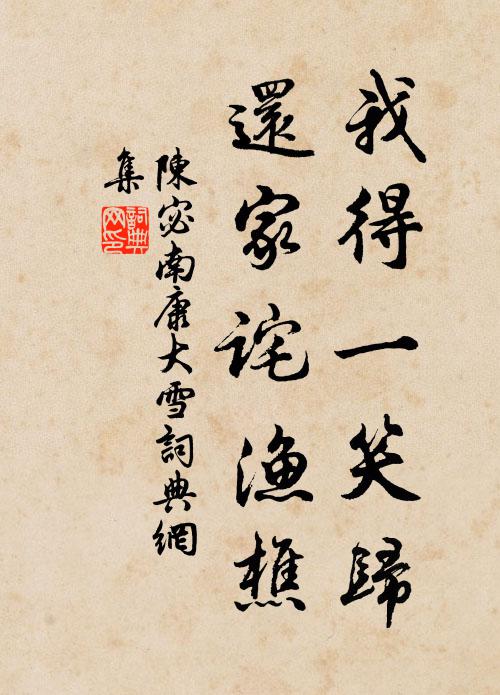 我得一笑歸
還家詫漁樵
陳宓南康大雪詞典網
集
詞典
网印